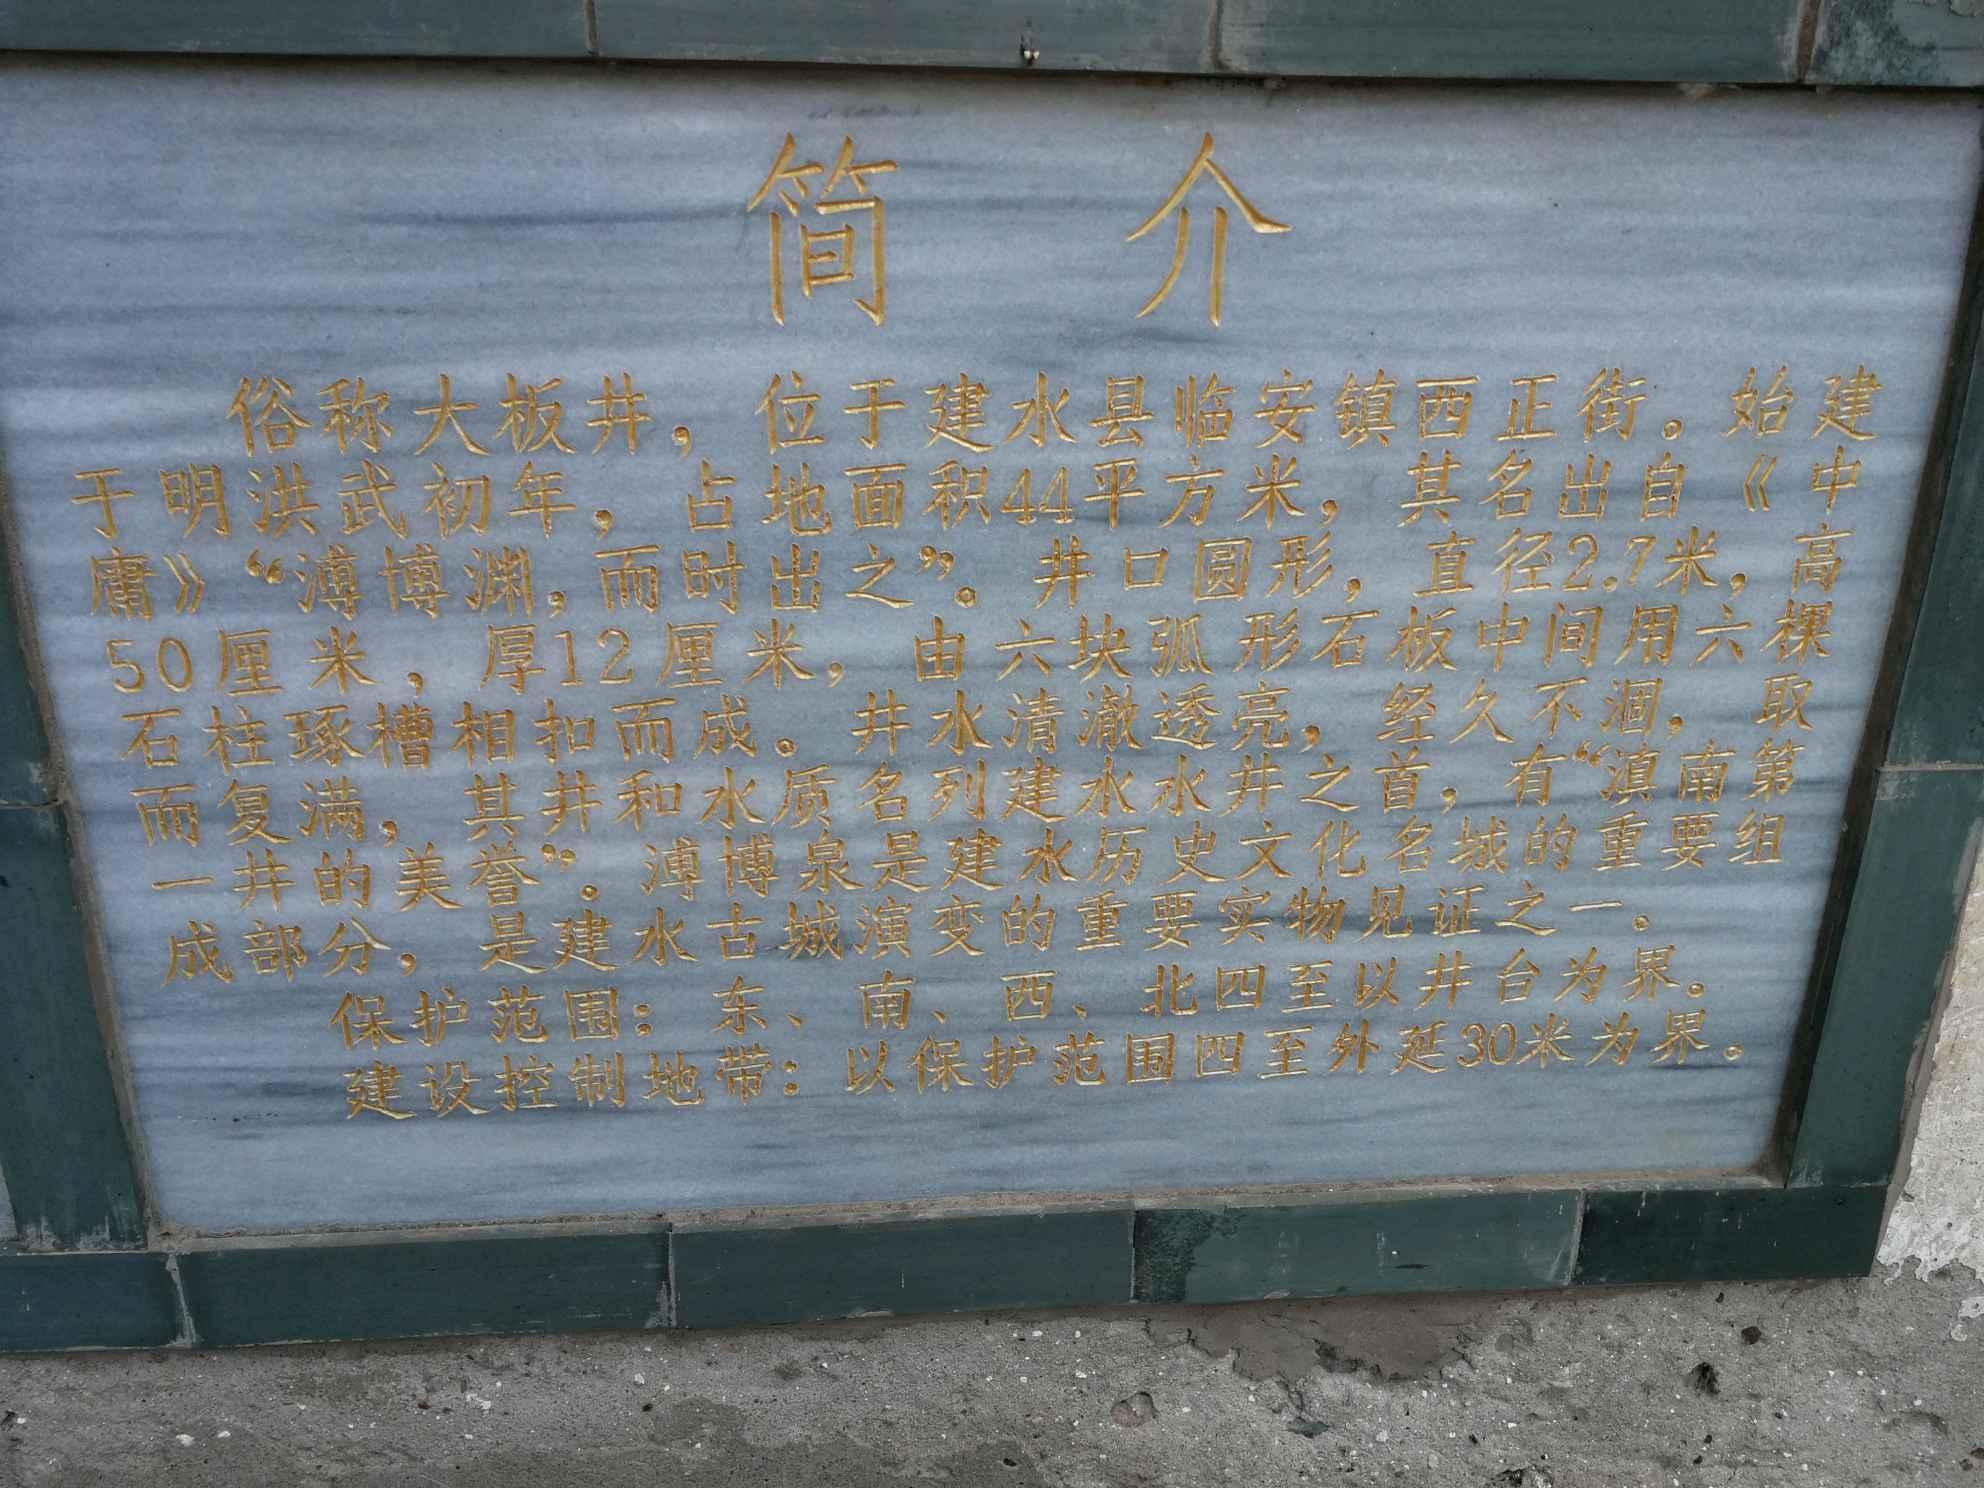 简介
俗称大板井，位于建水县临安镇西正街。始建
于明洪武初年，占地面积44平方米，其名出自《中
庸》“溥博渊，而时出之”。井口圆形，直径2.7米，高
50厘米，厚12厘米，由六块弧形石板中间用六棵
石柱琢槽相扣而成。井水清澈透亮，经久不涸，取
而复满，其井和水质名列建水水井之首，有“滇南第
一井的美誉”。溥博泉是建水历史文化名城的重要组
成部分，是建水古城演变的重要实物见证之一。
保护范围：东、南、西、北四至以井台为界。
建设控制地带：以保护范围四至外延30米为界。